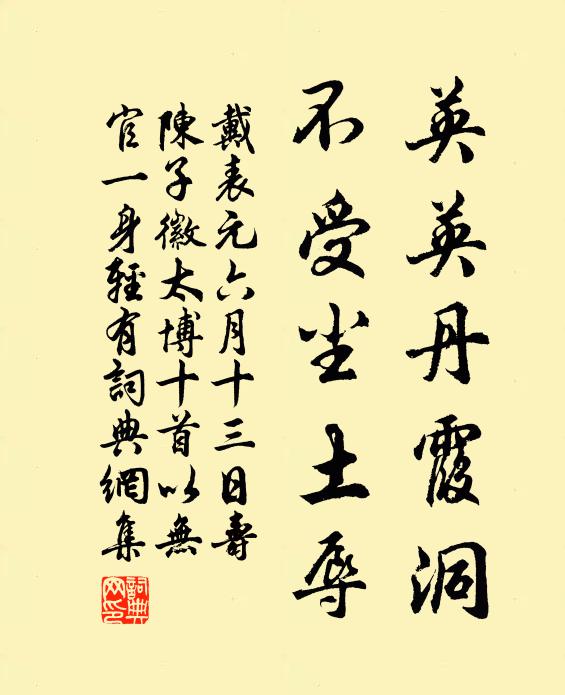 英英丹霞洞
不受尘土辱
戴表元六月十三日壽
陳子徽太博十首以無
官一身輕有詞典網集
詞典
网印